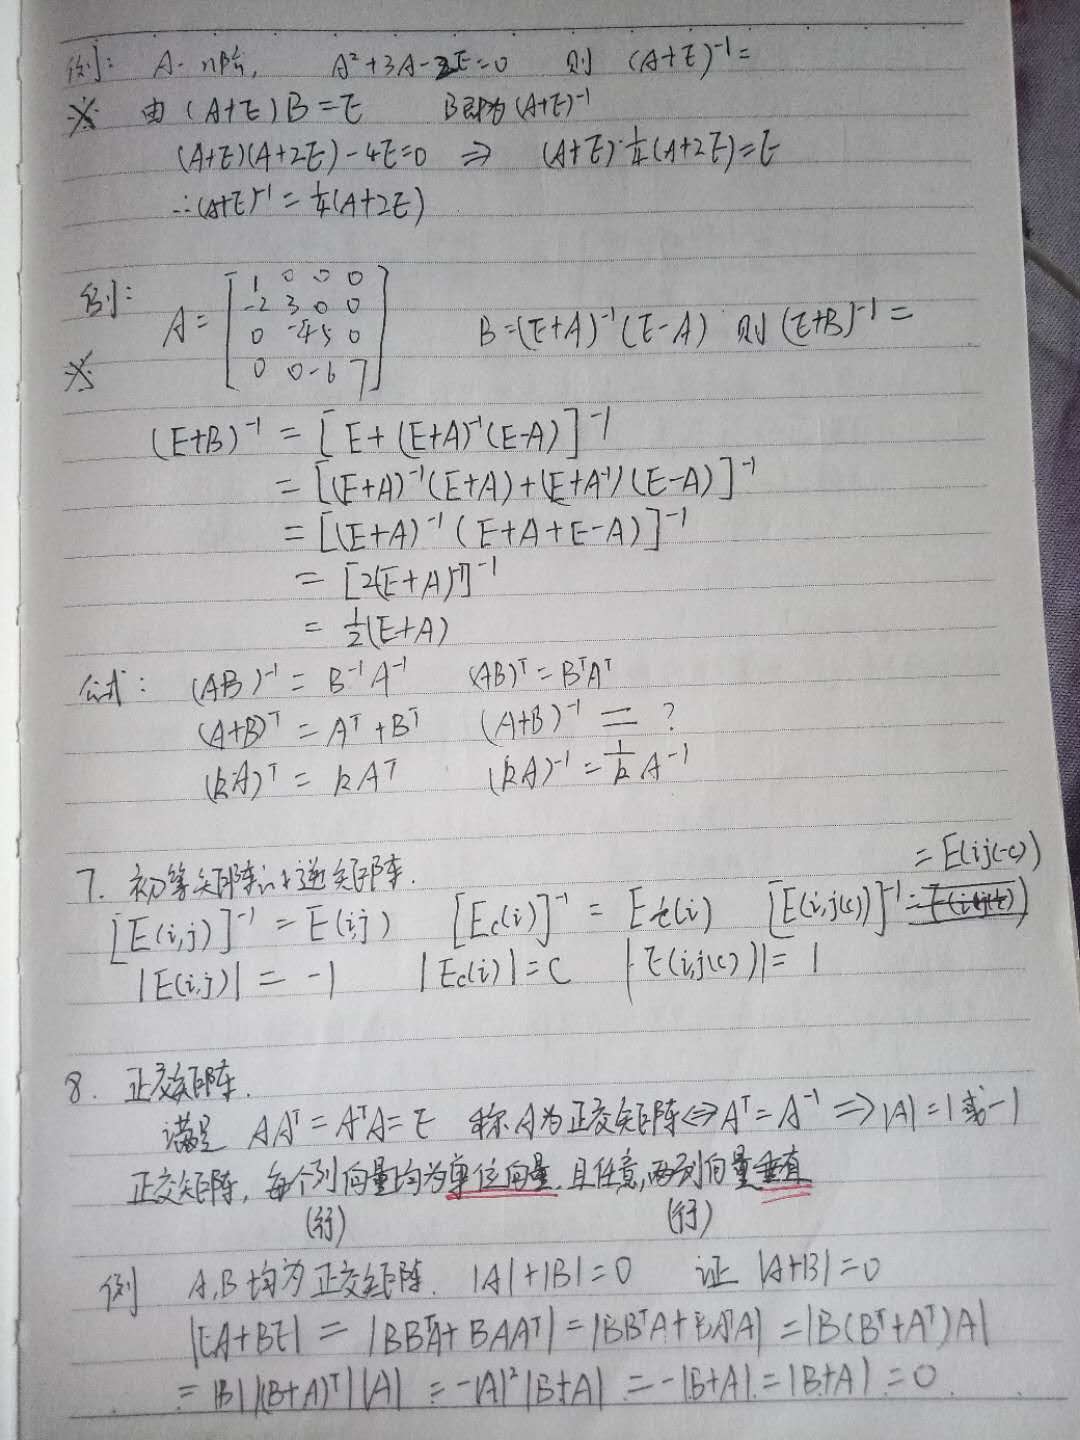 例: A-n阶, A²+3A-2E=0 则 (A+E)⁻¹=
※ 由 (A+E)B=E B即为(A+E)⁻¹
(A+E)(A+2E)-4E=0 ⇒ (A+E)·¼(A+2E)=E
∴(A+E)⁻¹=¼(A+2E)
例:
A= [1 0 0 0
-2 3 0 0
0 -4 5 0
0 0 -6 7] B=(E+A)⁻¹(E-A) 则(E+B)⁻¹=
※
(E+B)⁻¹ = [E+(E+A)⁻¹(E-A)]⁻¹
= [(E+A)⁻¹(E+A)+(E+A)⁻¹(E-A)]⁻¹
= [(E+A)⁻¹(E+A+E-A)]⁻¹
= [2(E+A)⁻¹]⁻¹
= ½(E+A)
公式: (AB)⁻¹ = B⁻¹A⁻¹ (AB)ᵀ=BᵀAᵀ
(A+B)ᵀ = Aᵀ+Bᵀ (A+B)⁻¹ = ?
(kA)ᵀ = kAᵀ (kA)⁻¹ = 1/k A⁻¹
7. 初等矩阵的逆矩阵. = E(ij(-c))
[E(i,j)]⁻¹ = E(ij) [Ec(i)]⁻¹ = E1/c(i) [E(i,j(c))]⁻¹=
|E(i,j)| = -1 |Ec(i)|=c |E(i,j(c))|= 1
8. 正交矩阵.
满足 AAᵀ=AᵀA=E 称A为正交矩阵⇔Aᵀ=A⁻¹ ⇒|A|=1或-1
正交矩阵, 每个列向量均为单位向量,且任意,两列向量垂直
(行) (行)
例 A,B均为正交矩阵. |A|+|B|=0 证 |A+B|=0
|EA+BE| = |BBᵀA+BAAᵀ|=|BBᵀA+BAᵀA| =|B(Bᵀ+Aᵀ)A|
= |B||(B+A)ᵀ||A| = -|A|²|B+A| = -|B+A|=|B+A|=0